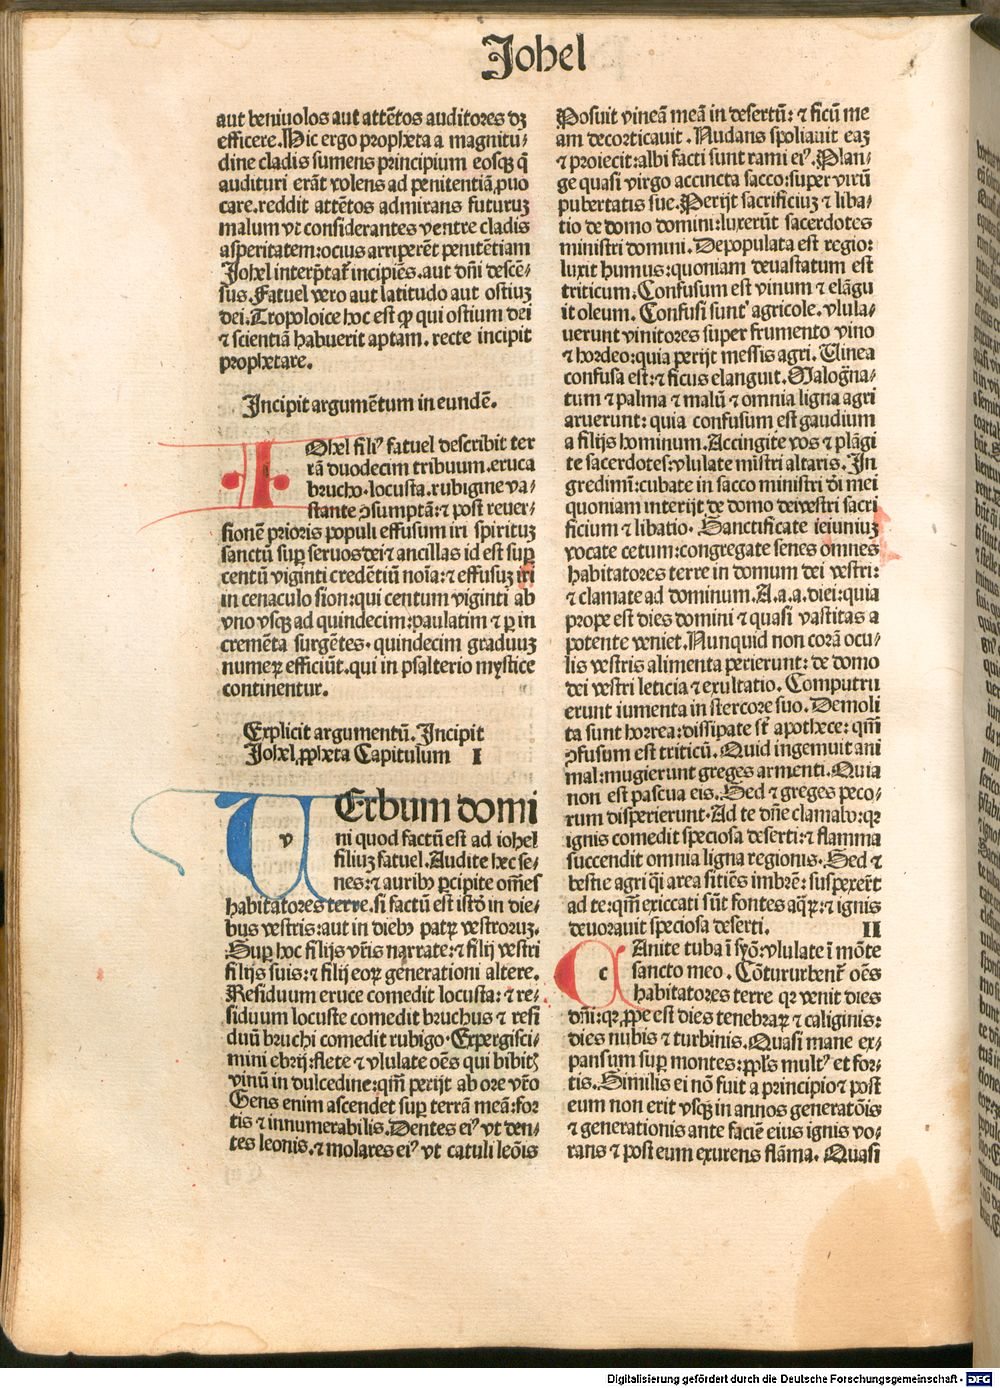 Johel
aut beniuolos aut attẽtos auditores dꝫ
efficere. Hic ergo propheta a magnitu⸗
dine cladis sumens principium eosqꝫ q̃
audituri erãt volens ad penitentiã ꝓuo
care. reddit attẽtos admirans futuruꝫ
malum vt considerantes ventre cladis
asperitatem: ocius arriperẽt penitẽtiam
Johel interp̃tat᷑ incipiẽs. aut dñi descẽ⸗
sus. Fatuel vero aut latitudo aut ostiuꝫ
dei. Tropoloice hoc est ꝙ qui ostium dei
⁊ scientiã habuerit aptam. recte incipit
prophetare.
Incipit argumẽtum in eundẽ.
IOhel filiꝰ fatuel describit ter
rã duodecim tribuum. eruca
brucho. locusta. rubigine va⸗
stante ꝯsumptã: ⁊ post reuer⸗
sionẽ prioris populi effusum iri spirituꝫ
sanctũ sup̱ seruos dei ⁊ ancillas id est sup̱
centũ viginti credẽtiũ noĩa: ⁊ effusuꝫ iri
in cenaculo sion: qui centum viginti ab
vno vsqꝫ ad quindecim: paulatim ⁊ ꝑ in
cremẽta surgẽtes. quindecim graduuꝫ
numeꝝ efficiũt. qui in psalterio mystice
continentur.
Explicit argumentũ. Incipit
Johel ꝓpheta Capitulum I
VErbum domi
v ni quod factũ est ad iohel
filiuꝫ fatuel. Audite hec se⸗
nes: ⁊ auribꝰ ꝑcipite om̃es
habitatores terre. si factũ est istð in die⸗
bus vestris: aut in diebꝰ patꝝ vestroruꝫ.
Sup̱ hoc filijs vr̃is narrate: ⁊ filij vestri
filijs suis: ⁊ filij eoꝝ generationi altere.
Residuum eruce comedit locusta: ⁊ re⸗
siduum locuste comedit bruchus ⁊ resi
duũ bruchi comedit rubigo. Expergisci⸗
mini ebrij: flete ⁊ vlulate oẽs qui bibitꝭ
vinũ in dulcedine: qm̃ perijt ab ore vr̃o
Gens enim ascendet sup̱ terrã meã: for
tis ⁊ innumerabilis. Dentes eiꝰ vt den⸗
tes leonis. ⁊ molares eiꝰ vt catuli leõis
Posuit vineã meã in desertũ: ⁊ ficũ me
am decorticauit. Nudans spoliauit eaꝫ
⁊ proiecit: albi facti sunt rami eiꝰ. Plan⸗
ge quasi virgo accincta sacco: super virũ
pubertatis sue. Perijt sacrificiuꝫ ⁊ liba⸗
tio de domo domini: luxerũt sacerdotes
ministri domini. Depopulata est regio:
luxit humus: quoniam deuastatum est
triticum. Confusum est vinum ⁊ elãgu
it oleum. Confusi sunt agricole. vlula⸗
uerunt vinitores super frumento vino
⁊ hordeo: quia perijt messis agri. Vinea
confusa est: ⁊ ficus elanguit. Malogña⸗
tum ⁊ palma ⁊ malũ ⁊ omnia ligna agri
aruerunt: quia confusum est gaudium
a filijs hominum. Accingite vos ⁊ plãgi
te sacerdotes: vlulate mĩstri altaris. In
gredimĩ: cubate in sacco ministri dei mei
quoniam interijt de domo dei vestri sacri
ficium ⁊ libatio. Sanctificate ieiuniuꝫ
vocate cetum: congregate senes omnes
habitatores terre in domum dei vestri:
⁊ clamate ad dominum. A. a. a. diei: quia
prope est dies domini ⁊ quasi vastitas a
potente veniet. Nunquid non corã ocu⸗
lis vestris alimenta perierunt: de domo
dei vestri leticia ⁊ exultatio. Computru
erunt iumenta in stercore suo. Demoli
ta sunt horrea: dissipate st̃ apothece: qm̃
ꝯfusum est triticũ. Quid ingemuit ani
mal: mugierunt greges armenti. Quia
non est pascua eis. Sed ⁊ greges peco⸗
rum disperierunt. Ad te dñe clamabo: qꝛ
ignis comedit speciosa deserti: ⁊ flamma
succendit omnia ligna regionis. Sed ⁊
bestie agri q̃i area sitiẽs imbrẽ: suspexerũt
ad te: qm̃ exiccati sũt fontes aqꝝ: ⁊ ignis
deuorauit speciosa deserti. II
CAnite tuba ĩ syõ: vlulate ĩ mõte
c sancto meo. Cõturbent᷑ oẽs
habitatores terre qꝛ venit dies
dñi: qꝛ ꝓpe est dies tenebraꝝ ⁊ caliginis:
dies nubis ⁊ turbinis. Quasi mane ex⸗
pansum sup̱ montes: ppl̃s multꝰ et for⸗
tis. Similis ei nõ fuit a principio ⁊ post
eum non erit vsqꝫ in annos generatõis
⁊ generationis ante faciẽ eius ignis vo⸗
rans ⁊ post eum exurens flãma. Quasi
Digitalisierung gefördert durch die Deutsche Forschungsgemeinschaft - DFG